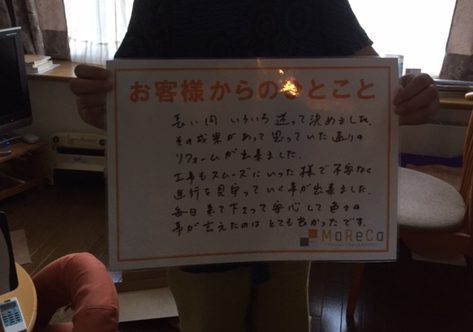 お客様からのひとこと
長い間 いろいろ迷って決めました。
その成果があって思っていた通りの
リフォームが出来ました。
工事もスムーズにいった様で不安なく
進行を見守っていく事が出来ました。
毎日来て下さって安心して色々の
事が言えたのはとても良かったです。
MaReCo